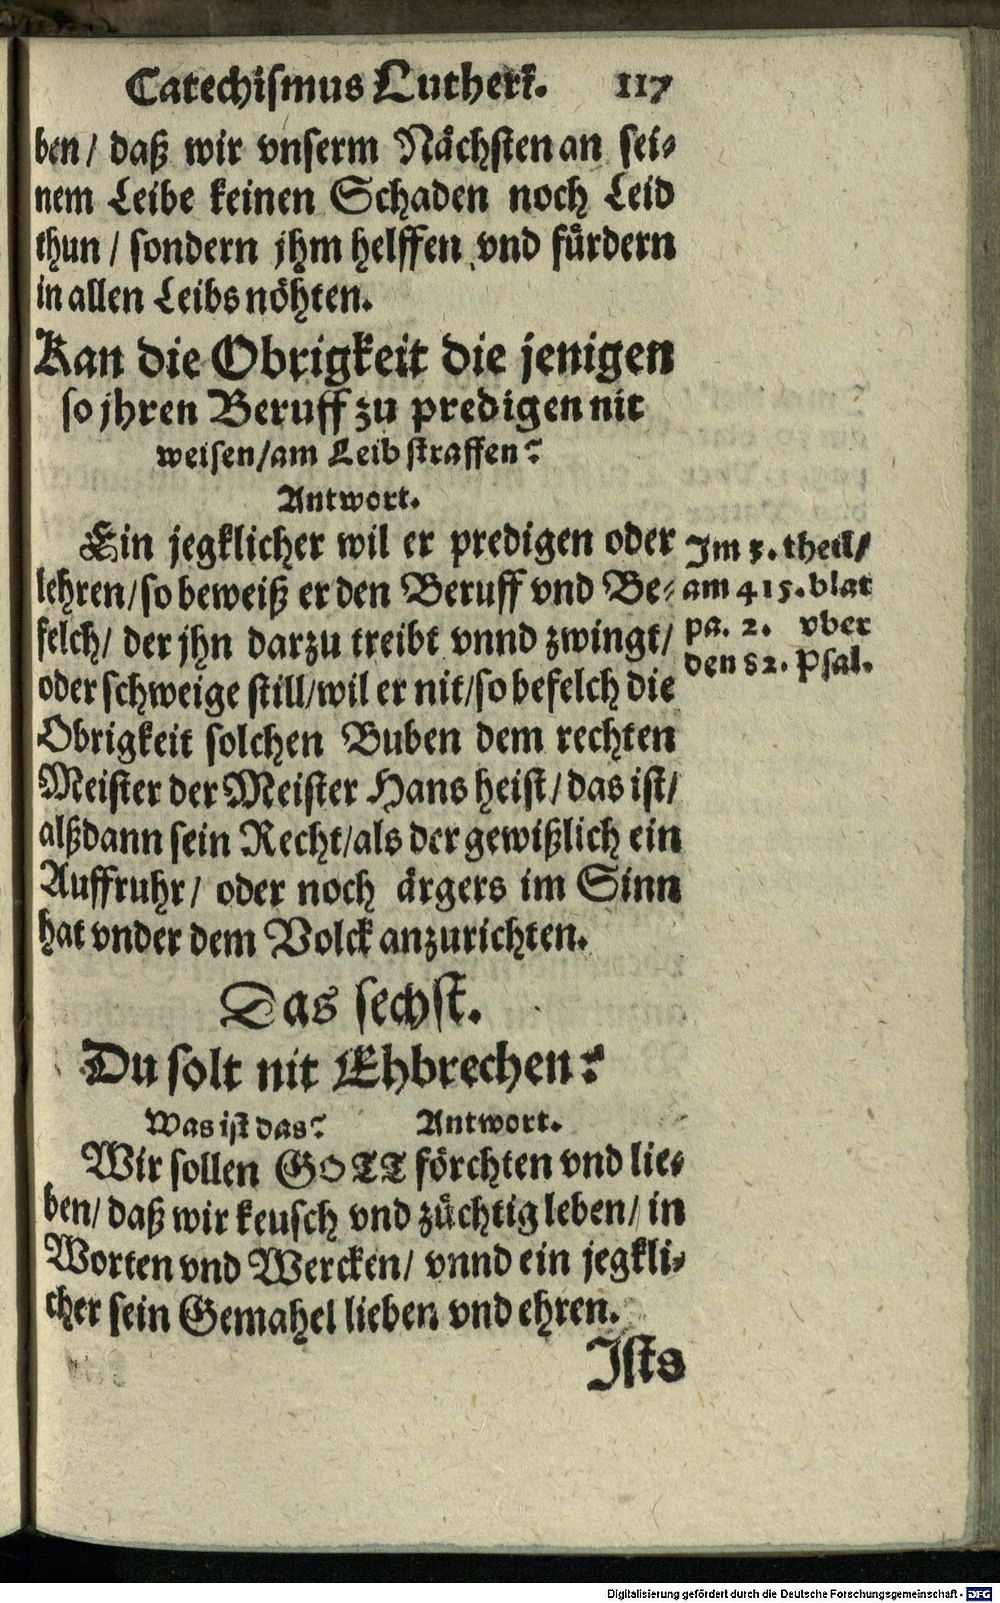 Catechismus Lutheri. 117
ben / daß wir vnserm Nächsten an sei-
nem Leibe keinen Schaden noch Leid
thun / sondern jhm helffen vnd fürdern
in allen Leibs nöhten.
Kan die Obrigkeit die jenigen
so jhren Beruff zu predigen nit
weisen / am Leib straffen?
Antwort.
Ein jegklicher wil er predigen oder
lehren / so beweiß er den Beruff vnd Be-
felch / der jhn darzu treibt vnnd zwingt /
oder schweige still / wil er nit / so befelch die
Obrigkeit solchen Buben dem rechten
Meister der Meister Hans heist / das ist /
alßdann sein Recht / als der gewißlich ein
Auffruhr / oder noch ärgers im Sinn
hat vnder dem Volck anzurichten.
Im 5. theil /
am 415. blat
pa. 2. vber
den 82. Psal.
Das sechst.
Du solt nit Ehbrechen?
Was ist das? Antwort.
Wir sollen GOTT förchten vnd lie-
ben / daß wir keusch vnd züchtig leben / in
Worten vnd Wercken / vnnd ein jegkli-
cher sein Gemahel lieben vnd ehren.
Ists
Digitalisierung gefördert durch die Deutsche Forschungsgemeinschaft - DFG